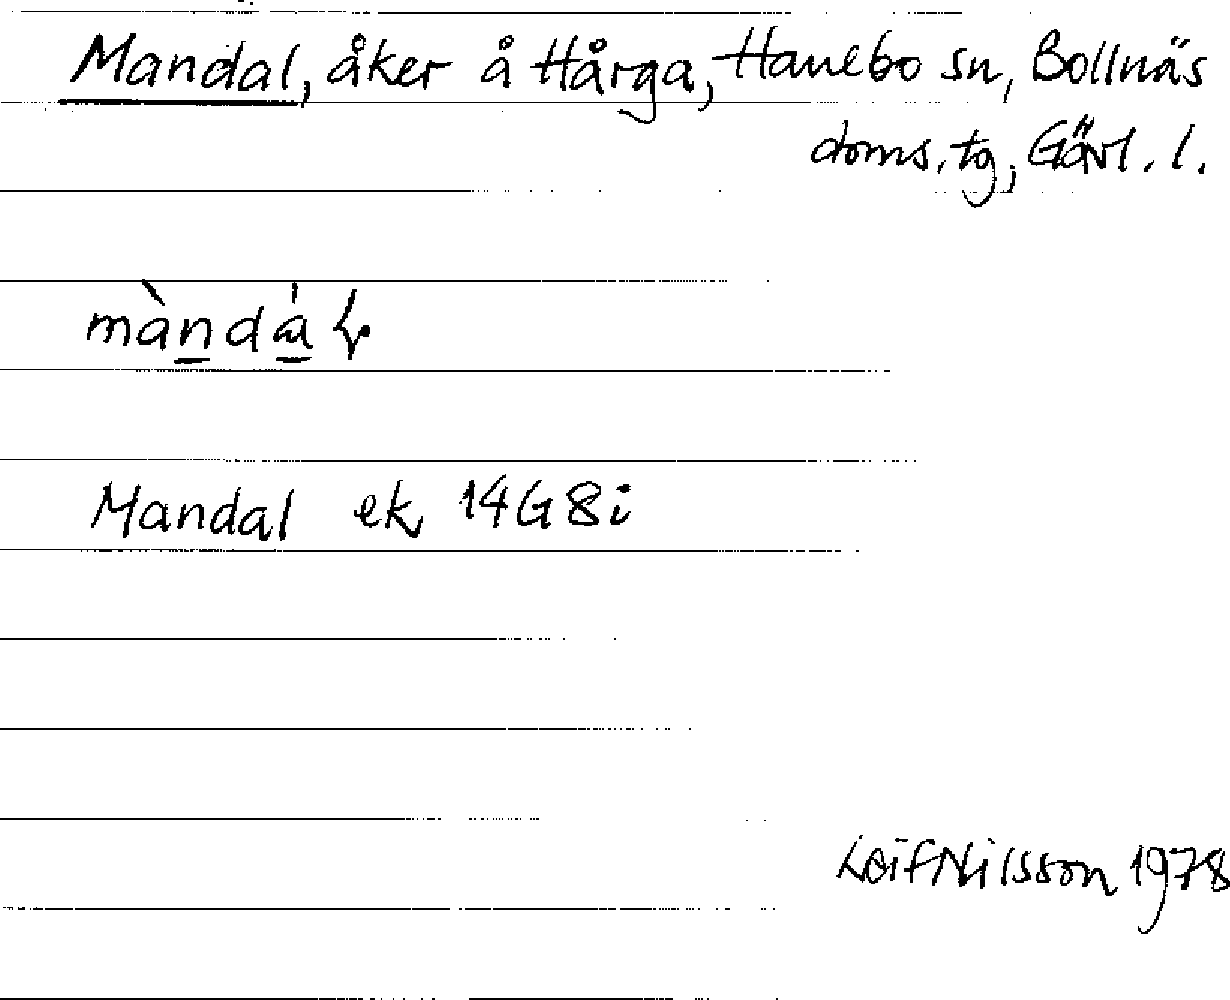 Mandal, åker å Hårga, Hanebo sn, Bollnäs
doms. tg, Gävl. l.
Mandal ek 14G8i
Leif Nilsson 1978